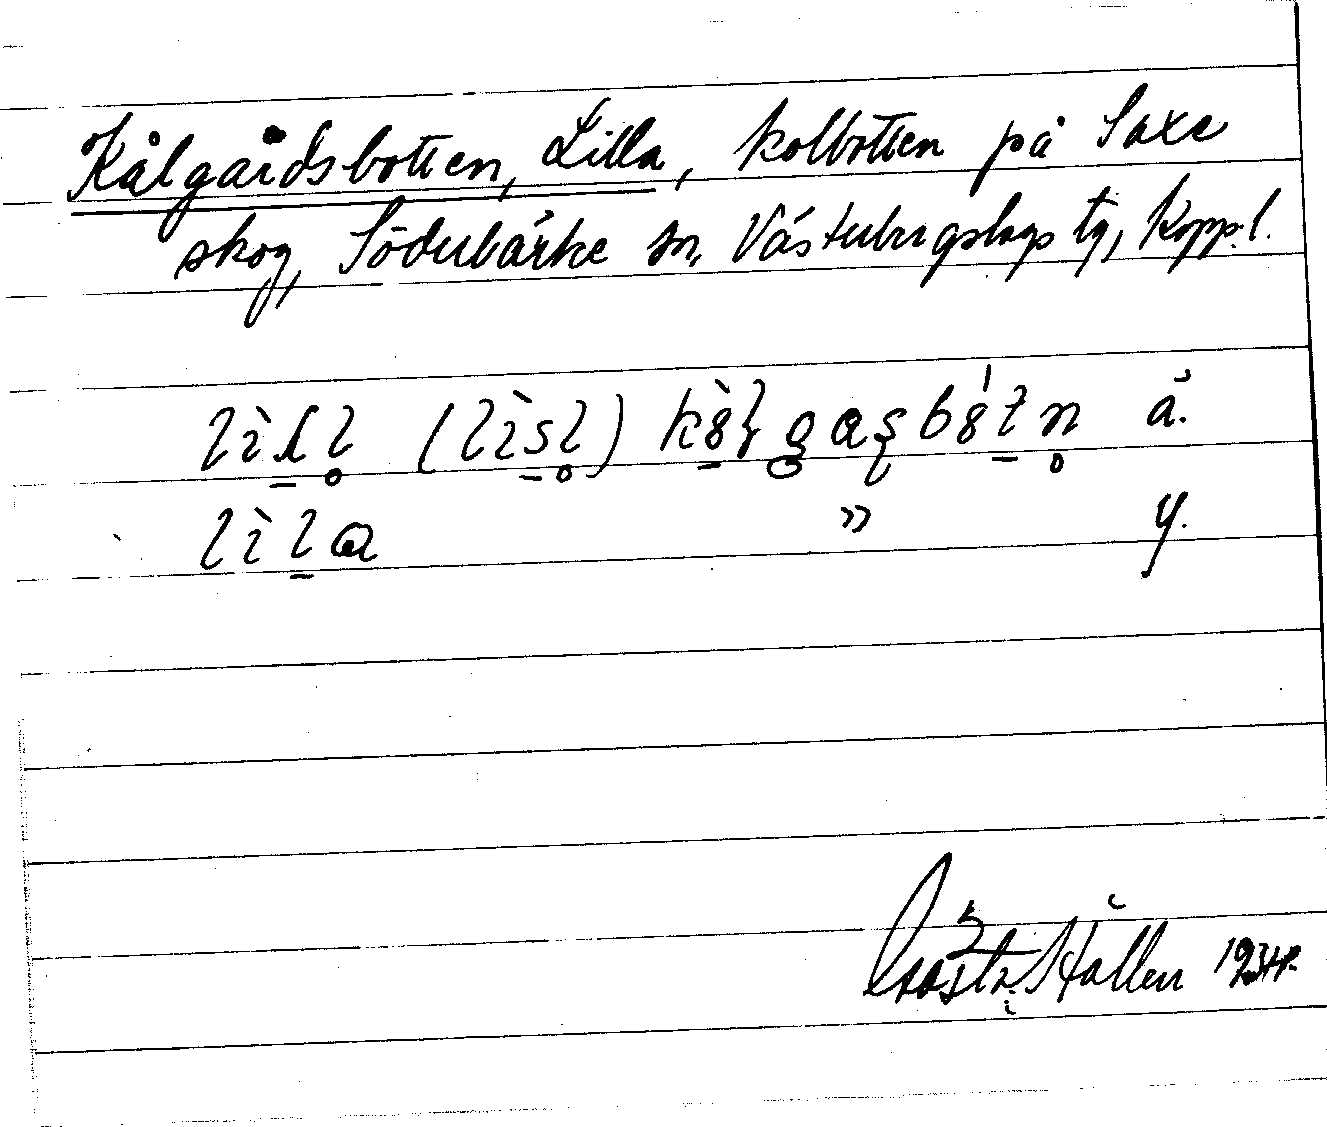 Kålgårdsbotten, Lilla, kolbotten på Saxe
skog, Söderbärke sn, Västerbergslags tg, Kopp. l.
lìḷḷ̥ (lìs̱l̥) kò̱ɭgaʂbót̠n̥ ä.
lìḻa " y.
Hallen 1934.